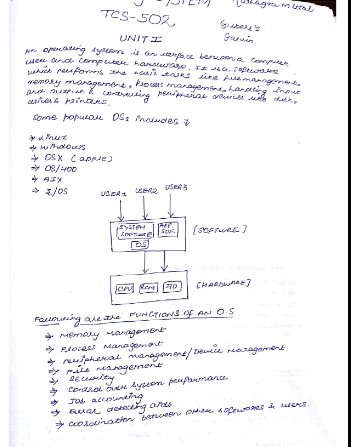 SYSTEM
TCS-502
UNIT I
An operating system is an interface between a computer
user and computer hardware. It is a software
which performs the basic tasks like file management,
memory management, Process management, handling input
and output & controlling peripheral devices like disk
drives & printers.
Some popular OSs includes
→ Linux
→ windows
→ OSX (apple)
→ OS/400
→ AIX
→ I/OS
USER1 USER2 USER3
SYSTEM SOFTWARE APP. SOF.
[SOFTWARE]
OS
CPU ROM I/O [HARDWARE]
Following are the FUNCTIONS OF AN O.S
→ Memory Management
→ Process Management
→ Peripheral management/Device Management
→ File Management
→ Security
→ Control over system performance
→ Job accounting
→ Error detecting aids
→ Coordination between other softwares & users